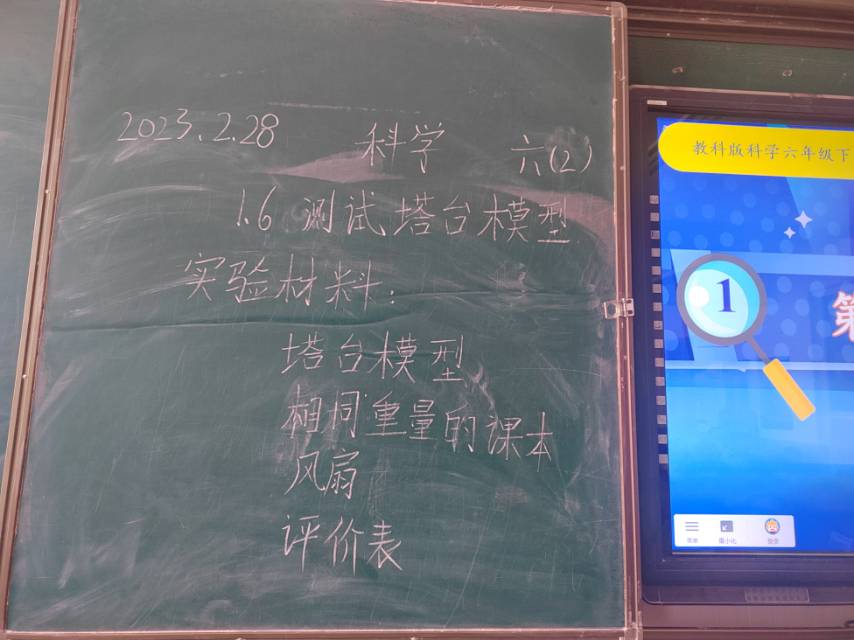 2023.2.28 科学 六(2)
1.6 测试塔台模型
实验材料:
塔台模型
相同重量的课本
风扇
评价表
教科版科学六年级下
1
第
菜单 最小化